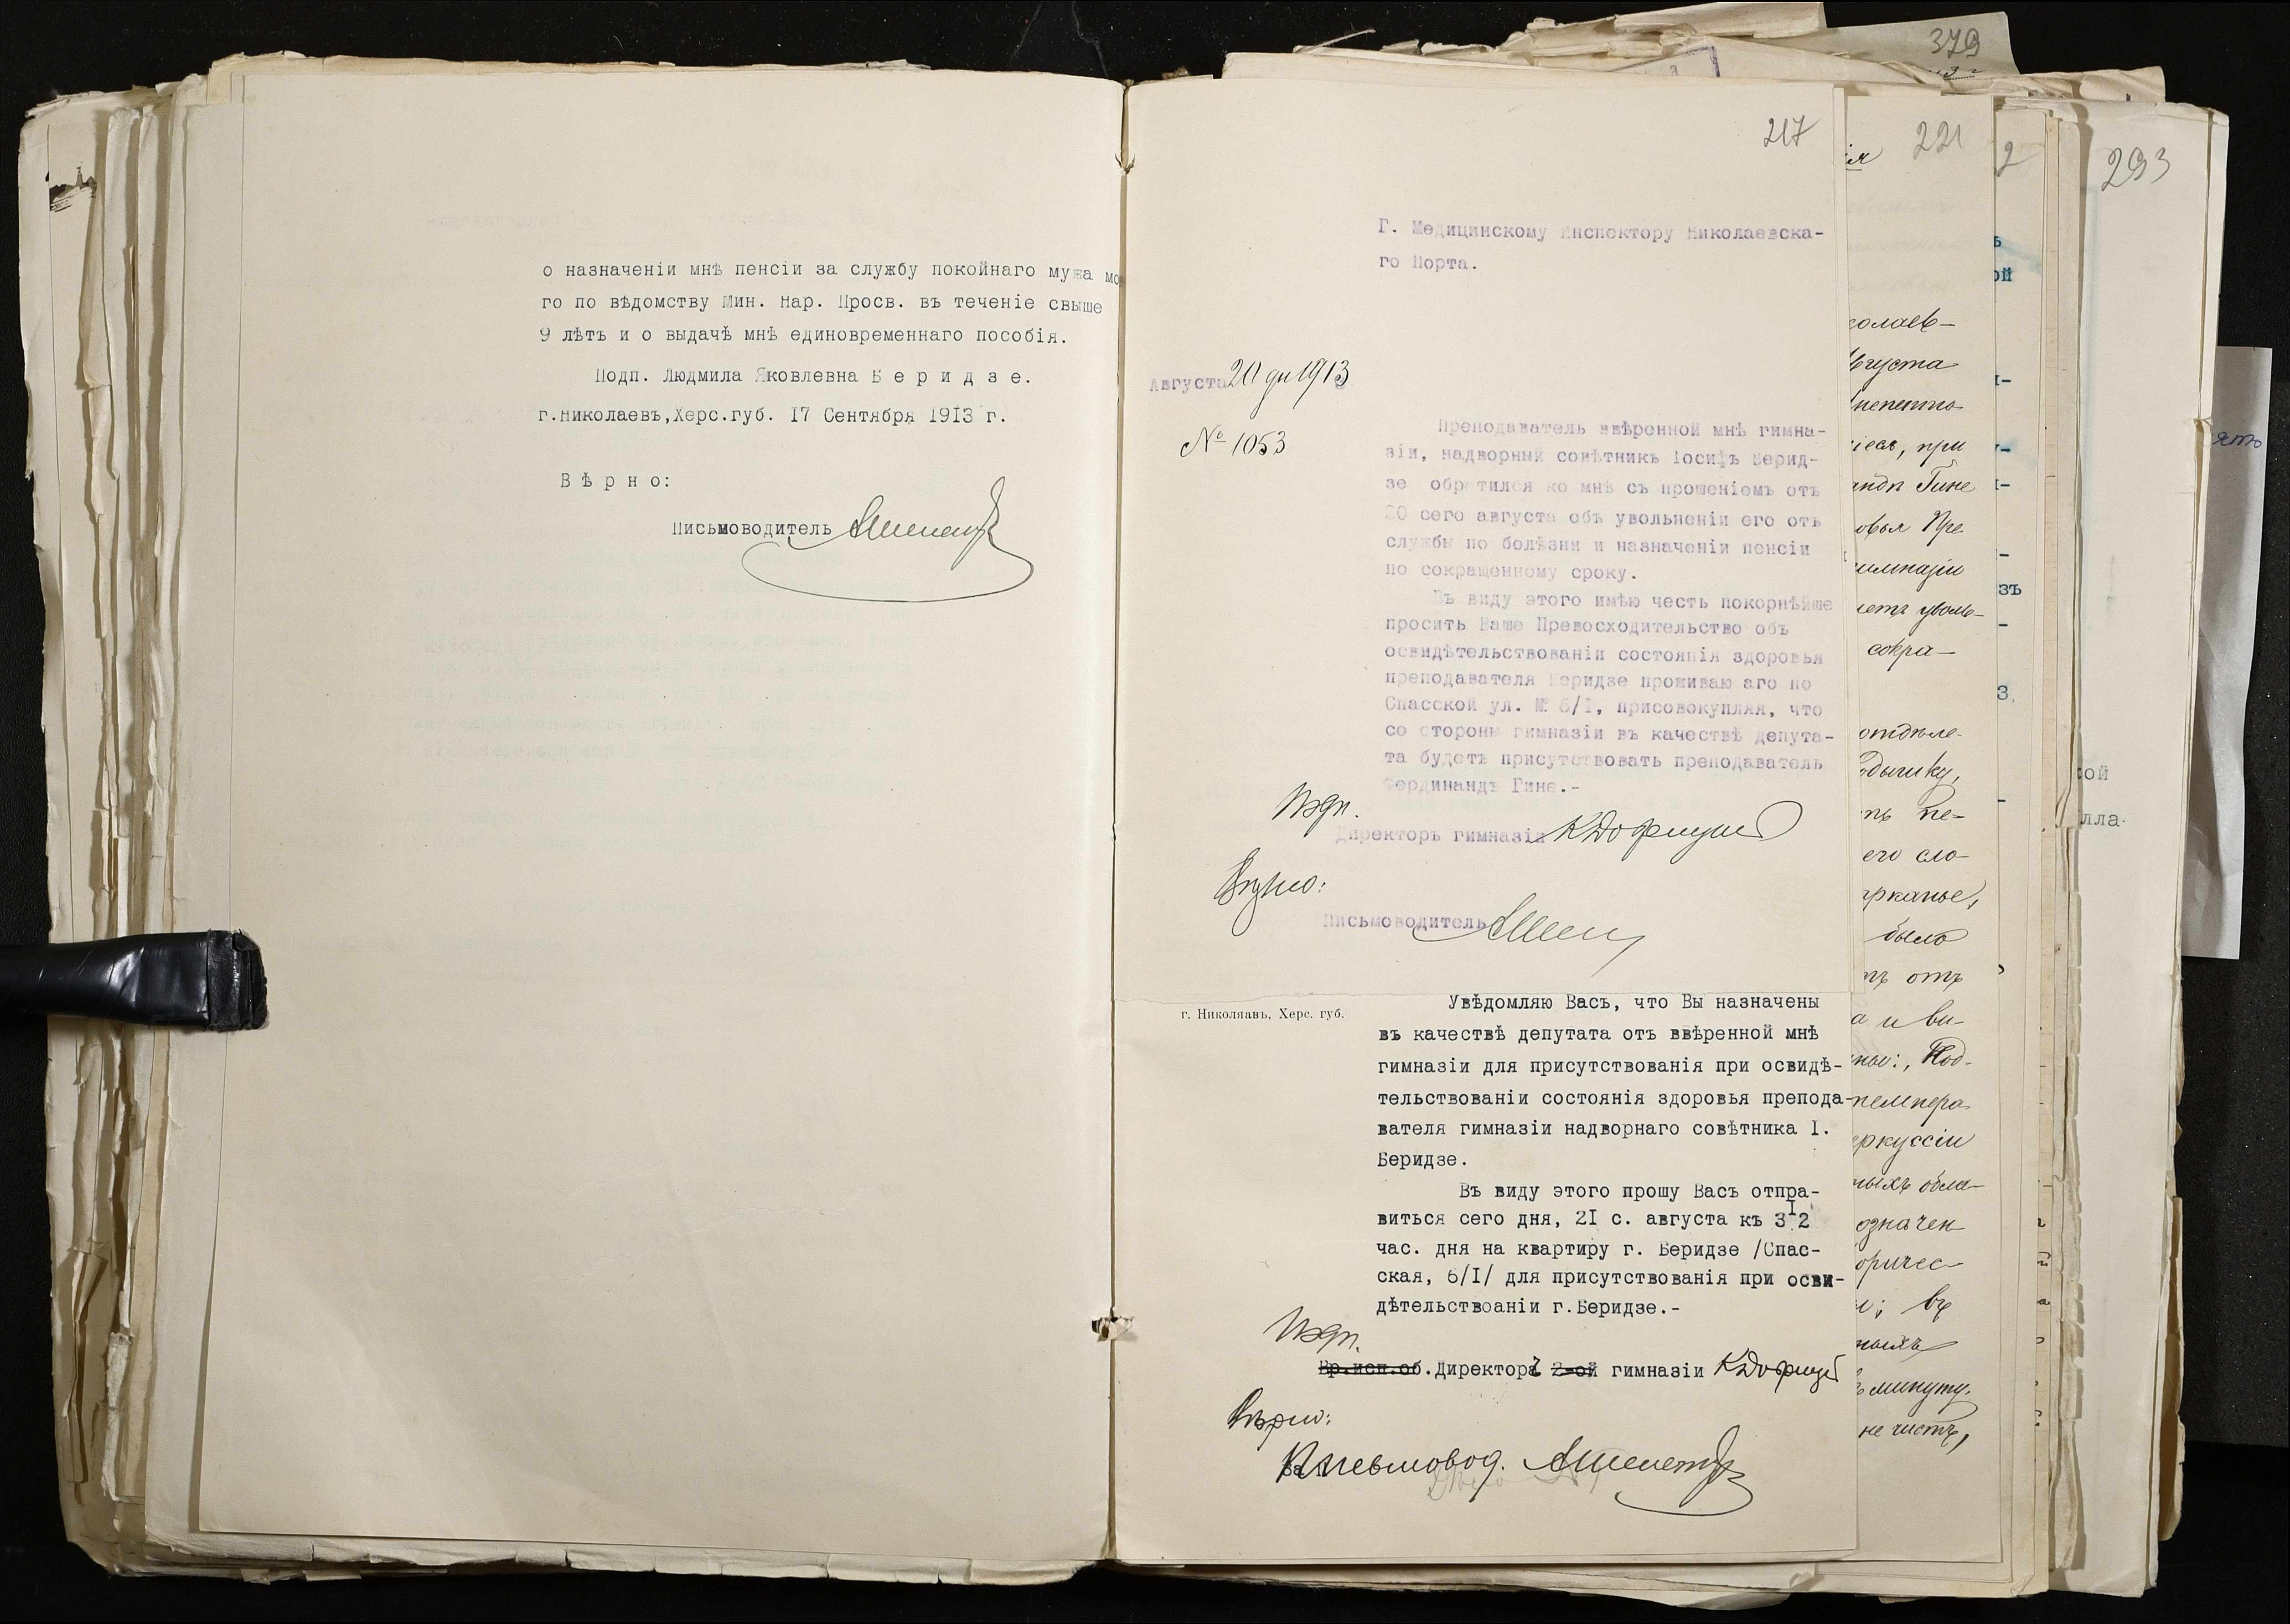 о назначеніи мнѣ пенсіи за службу покойнаго мужа мо
го по вѣдомству Мин. Нар. Просв. въ теченіе свыше
9 лѣтъ и о выдачѣ мнѣ единовременнаго пособія.
Подп. Людмила Яковлевна Б е р и д з е.
г.Николаевъ,Херс.губ. 17 Сентября 1913 г.
В ѣ р н о:
Письмоводитель
217
Г. Медицинскому Инспектору Николаевска-
го Порта.
Августа 20 дн 1913
№ 1053
Преподаватель ввѣренной мнѣ гимна-
зіи, надворный совѣтникъ Іосифъ Берид-
зе обратился ко мнѣ съ прошеніемъ отъ
20 сего августа объ увольненіи его отъ
службы по болѣзни и назначеніи пенсіи
по сокращенному сроку.
Въ виду этого имѣю честь покорнѣйше
просить Ваше Превосходительство объ
освидѣтельствованіи состоянія здоровья
преподавателя Беридзе проживаю аго по
Спасской ул. № 6/I, присовокупляя, что
со стороны гимназіи въ качествѣ депута-
та будетъ присутствовать преподаватель
Фердинандъ Гине.-
Подп.
Директоръ гимназіи
Вѣрно:
Письмоводитель
г. Николяавъ, Херс. губ.
Увѣдомляю Васъ, что Вы назначены
въ качествѣ депутата отъ ввѣренной мнѣ
гимназіи для присутствованія при освидѣ-
тельствованіи состоянія здоровья препода-
вателя гимназіи надворнаго совѣтника I.
Беридзе.
Въ виду этого прошу Васъ отпра-
виться сего дня, 2I с. августа къ 3 I/2
час. дня на квартиру г. Беридзе /Спас-
ская, 6/I/ для присутствованія при осви-
дѣтельствоаніи г.Беридзе.-
Подп.
Вр.исп.об.Директоръ 2-ой гимназіи
Вѣрно:
Письмовод.
379
221
2
293
олаев-
Августа
іеся, при
андъ Гине
овья Пре
имназіи
сокра-
отдѣле-
его сло-
было
отъ
темпера
еркуссіи
означен
въ
минуту,
не чистъ,
ой
зъ
3
ой
лла